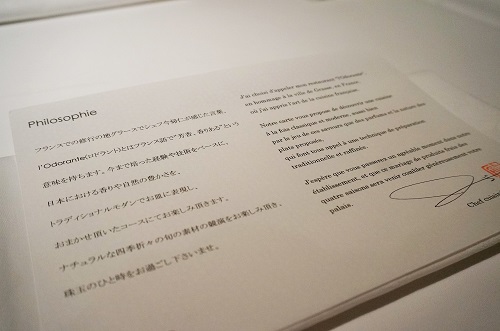 Philosophie
フランスでの修行の地グラースでシェフ今帰仁が感じた言葉、
l'Odorante(ロドラント)とはフランス語で"芳香、香りある"という
意味を持ちます。今まで培った経験や技術をベースに、
日本における香りや自然の豊かさを、
トラディショナルモダンでお皿に表現し、
おまかせ頂いたコースにてお楽しみ頂きます。
ナチュラルな四季折々の旬の素材の競演をお楽しみ頂き、
珠玉のひと時をお過ごし下さいませ。
J'ai choisi d'appeler mon restaurant "l'Odorante"
en hommage à la ville de Grasse, en France,
où j'ai appris l'art de la cuisine française.
Notre carte vous propose de découvrir une cuisine
à la fois classique et moderne,
par le jeu de ses saveurs que des parfums et la nature des
plats proposés,
qui font tous appel à une technique de préparation
traditionnelle et raffinée.
J'espère que vous passerez un agréable moment dans notre
établissement, et que ce mariage de produits frais des
quatre saisons sera venir combler généreusement votre
palais.
Chef